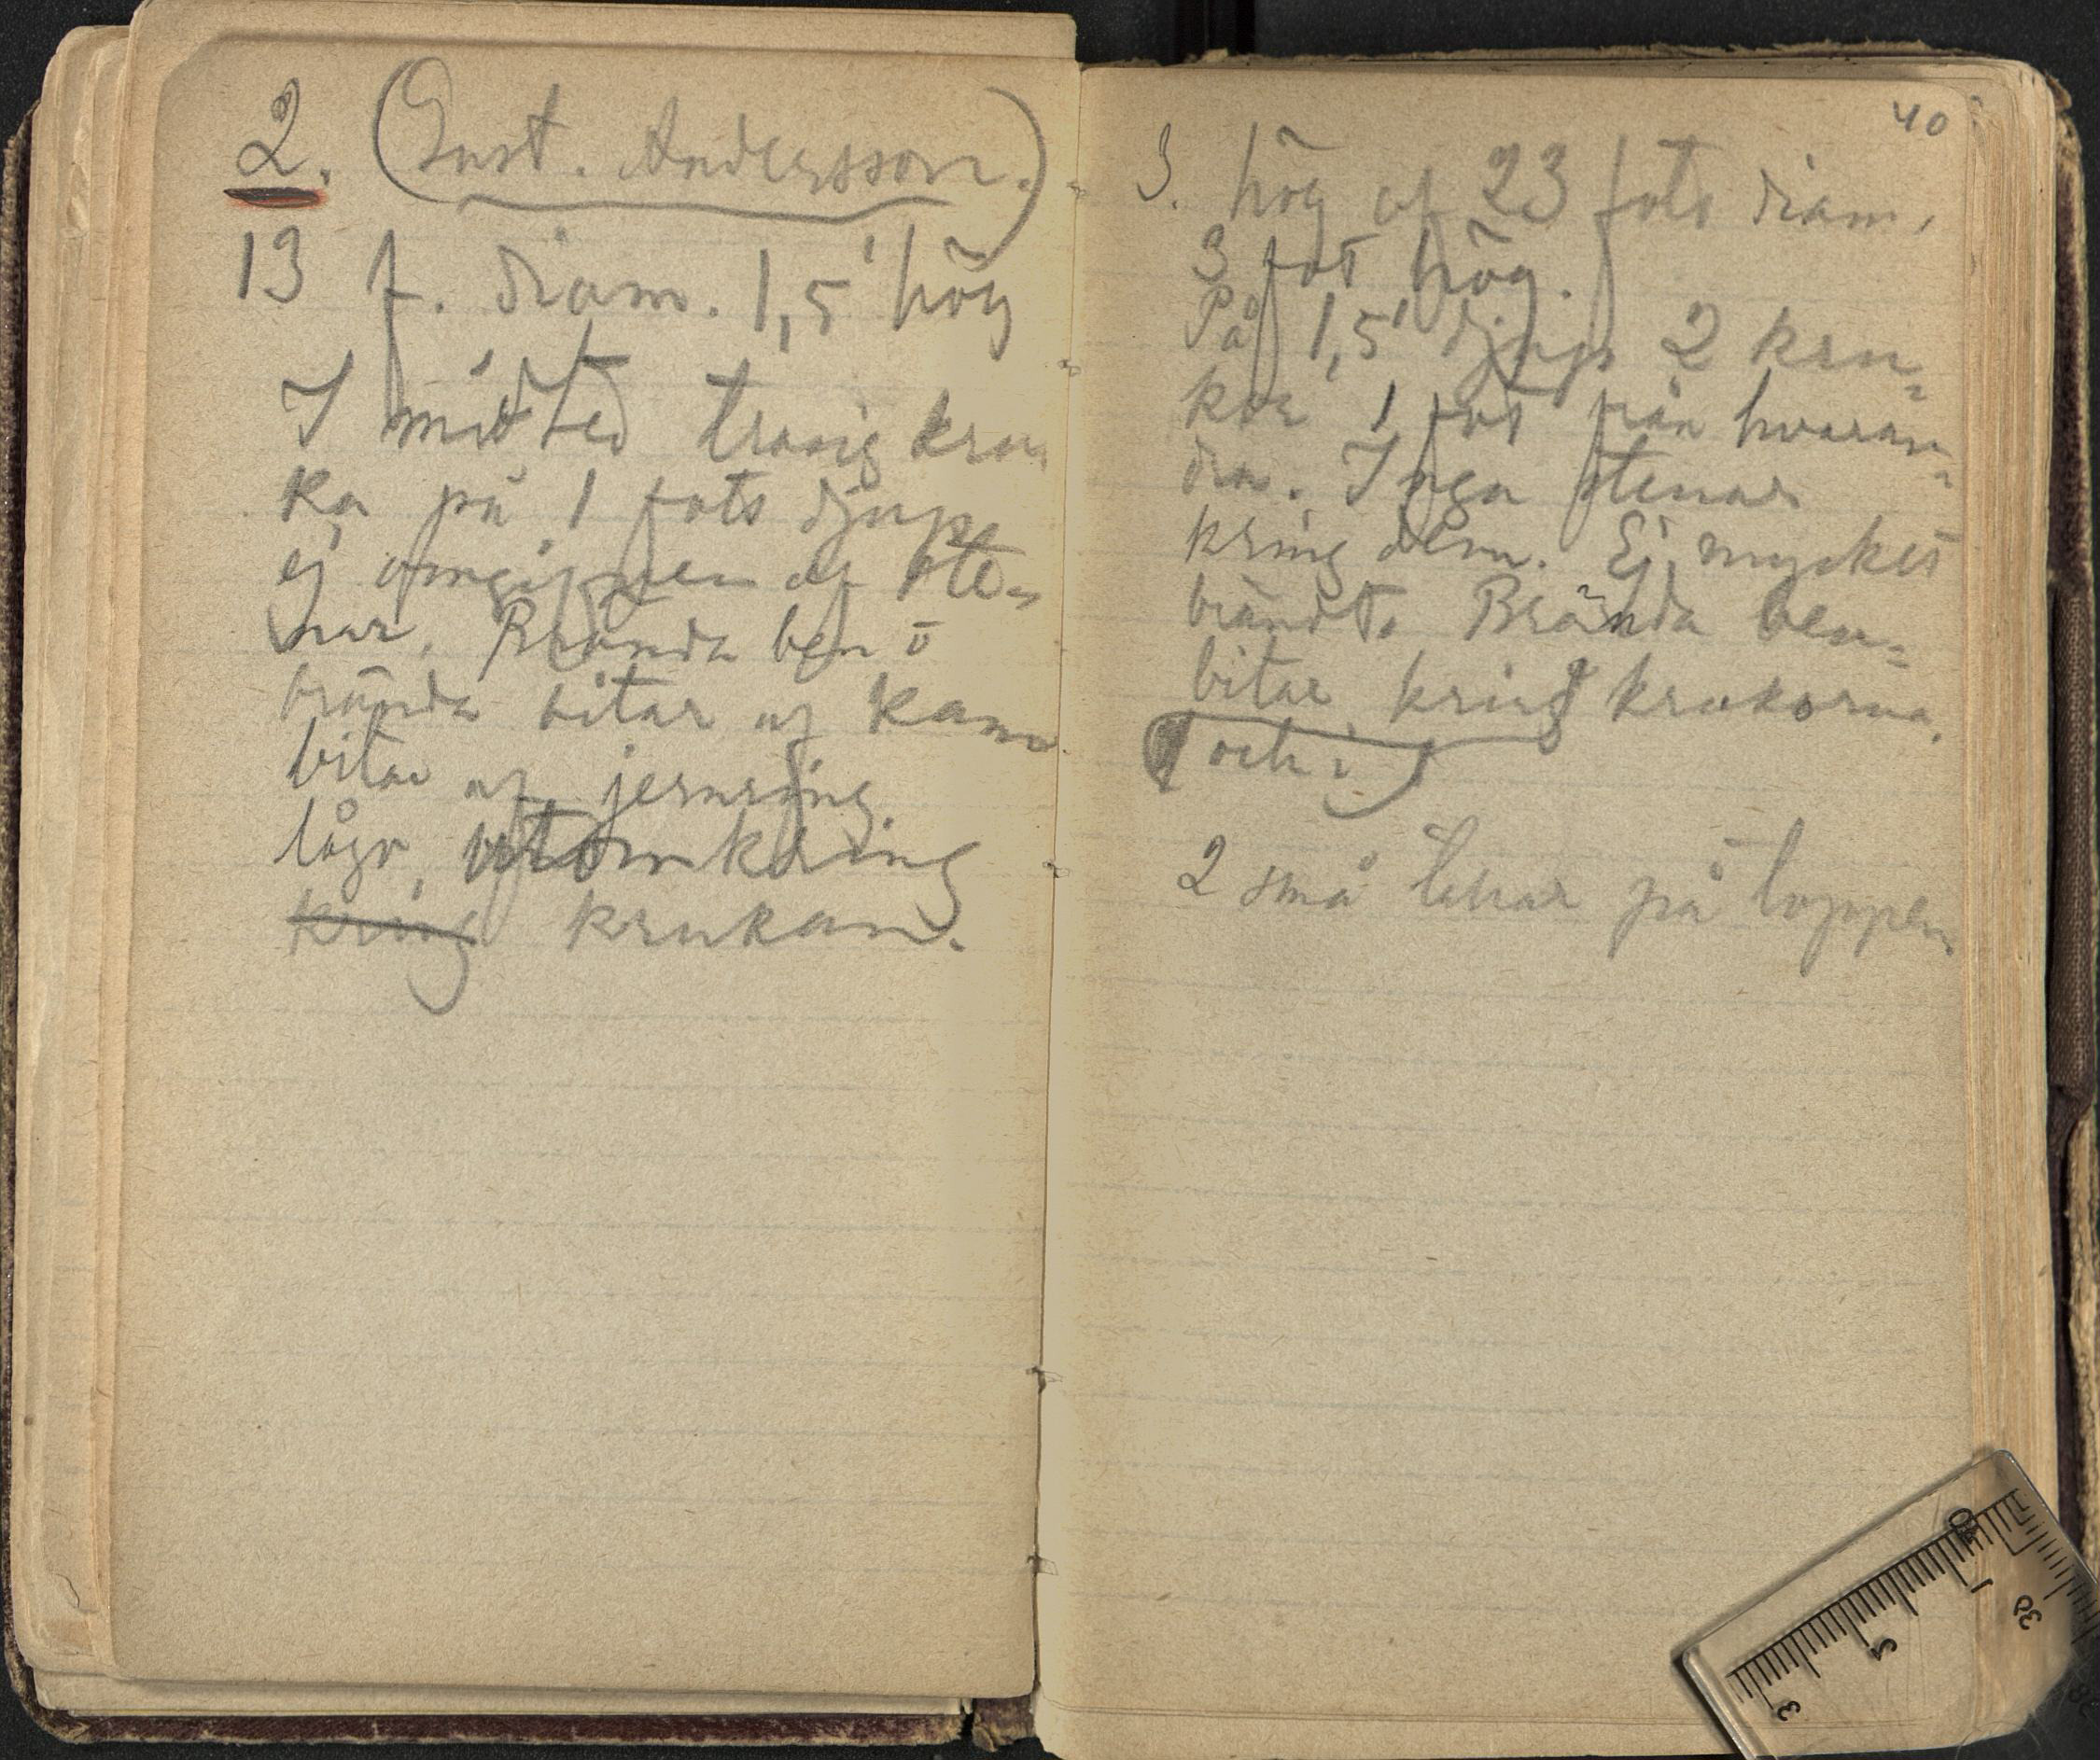 2. (Gust. Andersson.)
13 f. diam. 1,5' hög
I midten trasig kru-
ka på 1 fots djup,
ej omgifven af ste-
nar. Brända ben o
brända bitar af kam
bitar af jernring
lågo utomkring
kring krukan.
40
3. hög af 23 fots diam.
3 fot hög.
På 1,5' djup 2 kru-
kor 1 fot från hvaran-
dra. Inga stenar
kring dem. Ej mycket
brändt. Brända ben-
bitar kring krukorna.
(och i)
2 små på toppen
0
1
2
3
30